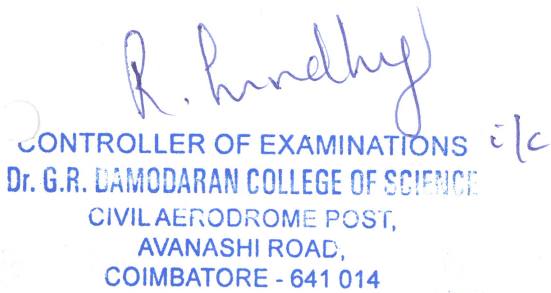 R.
CONTROLLER OF EXAMINATIONS i/c
Dr. G.R. DAMODARAN COLLEGE OF SCIENCE
CIVIL AERODROME POST,
AVANASHI ROAD,
COIMBATORE - 641 014